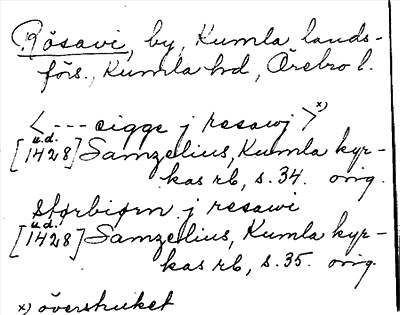 Rösavi, by, Kumla lands-
förs., Kumla hd, Örebro l.
<--- sigge j resawj> x)
u.d.
[1428] Samzelius, Kumla kyr-
kas rb, s. 34. orig.
størbiørn j resawi
u.d.
[1428] Samzelius, Kumla kyr-
kas rb, s. 35. orig.
x) överstruket